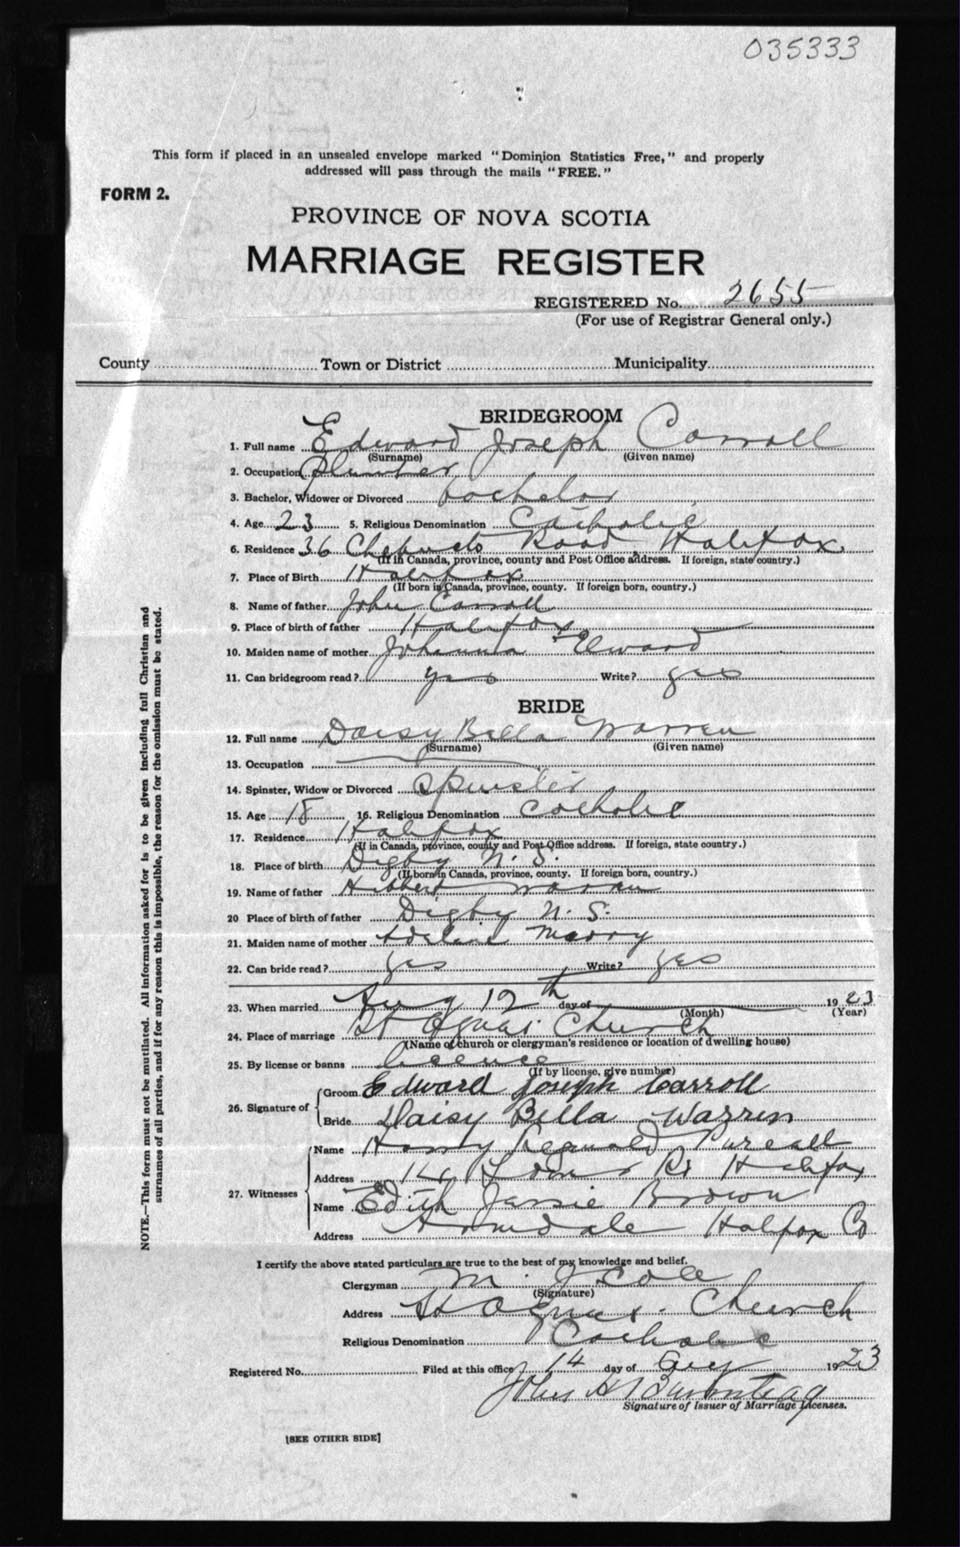 035333
This form if placed in an unsealed envelope marked "Dominion Statistics Free," and properly
addressed will pass through the mails "FREE."
FORM 2.
PROVINCE OF NOVA SCOTIA
MARRIAGE REGISTER
REGISTERED No. 2655
(For use of Registrar General only.)
County Town or District Municipality
BRIDEGROOM
1. Full name Edward Joseph Carroll
(Surname) (Given name)
2. Occupation Plumber
3. Bachelor, Widower or Divorced bachelor
4. Age 23 5. Religious Denomination Catholic
6. Residence 36 Chebucto Road Halifax
(If in Canada, province, county and Post Office address. If foreign, state country.)
7. Place of Birth Halifax
(If born in Canada, province, county. If foreign born, country.)
8. Name of father John Carroll
9. Place of birth of father Halifax
10. Maiden name of mother Johanna Elward
11. Can bridegroom read? yes Write? yes
BRIDE
12. Full name Daisy Bella Warren
(Surname) (Given name)
13. Occupation
14. Spinster, Widow or Divorced Spinster
15. Age 18 16. Religious Denomination Catholic
17. Residence Halifax
(If in Canada, province, county and Post Office address. If foreign, state country.)
18. Place of birth Digby N. S.
(If born in Canada, province, county. If foreign born, country.)
19. Name of father Warren
20 Place of birth of father Digby N. S.
21. Maiden name of mother Adeline
22. Can bride read? yes Write? yes
23. When married Aug 12th day of 1923
(Month) (Year)
24. Place of marriage St Agnes Church
(Name of church or clergyman's residence or location of dwelling house)
25. By license or banns licence
(If by license, give number)
26. Signature of
Groom Edward Joseph Carroll
Bride Daisy Bella Warren
27. Witnesses
Name Harry Reginald Purcell
Address Halifax
Name Edith Jessie Brown
Address Armdale Halifax Co
I certify the above stated particulars are true to the best of my knowledge and belief.
Clergyman M. J Cole
(Signature)
Address St Agnes Church
Religious Denomination Catholic
Registered No. Filed at this office 14 day of Aug 1923
John H Barnstead
Signature of Issuer of Marriage Licenses.
[SEE OTHER SIDE]
NOTE.—This form must not be mutilated. All information asked for is to be given including full Christian and
surnames of all parties, and if for any reason this is impossible, the reason for the omission must be stated.